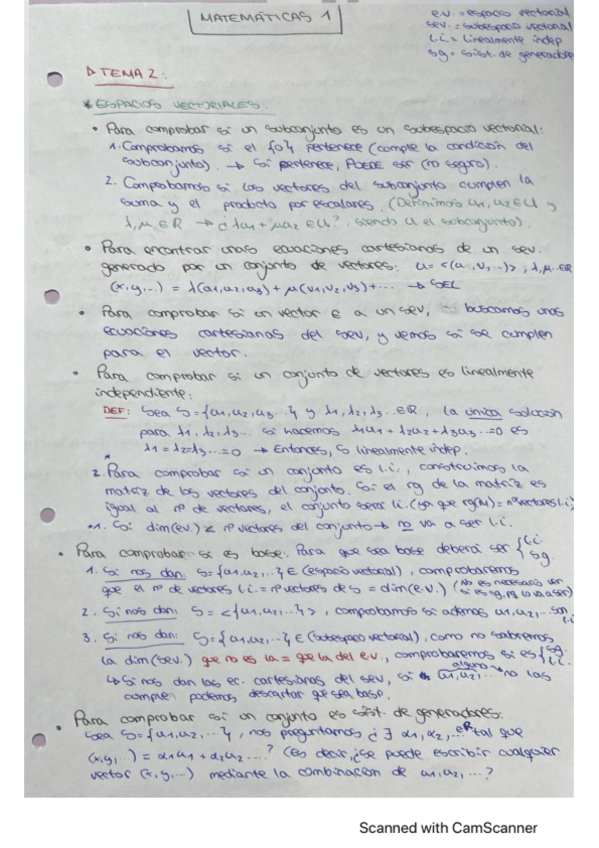 MATEMÁTICAS 1
e.v. = espacio vectorial
sev. = subespacio vectorial
l.i. = linealmente indep
sg = sist. de generadores
▷ TEMA 2:
* ESPACIOS VECTORIALES.
• Para comprobar si un subconjunto es un subespacio vectorial:
1. Comprobamos si el {0} pertenece (cumple la condición del
subconjunto). → Si pertenece, PUEDE ser (no seguro).
2. Comprobamos si los vectores del subconjunto cumplen la
suma y el producto por escalares. (Definimos u1, u2 ∈ U y
λ, μ ∈ R → ¿ λu1 + μu2 ∈ U? siendo U el subconjunto).
• Para encontrar unas ecuaciones cartesianas de un sev.
generado por un conjunto de vectores: U = <(u, v, ...)>, λ, μ... ∈ R
(x, y, ...) = λ(u1, u2, u3) + μ(v1, v2, v3) + ... → SEL
• Para comprobar si un vector ∈ a un sev, buscamos unas
ecuaciones cartesianas del sev, y vemos si se cumplen
para el vector.
• Para comprobar si un conjunto de vectores es linealmente
independiente:
DEF: Sea S = {u1, u2, u3 ...} y λ1, λ2, λ3 ... ∈ R, la única solución
para λ1, λ2, λ3 ... si hacemos λ1u1 + λ2u2 + λ3u3 ... = 0 es
λ1 = λ2 = λ3 ... = 0 → Entonces, S linealmente indep.
2. Para comprobar si un conjunto es l.i., construimos la
matriz de los vectores del conjunto. Si el rg de la matriz es
igual al nº de vectores, el conjunto será l.i. (ya que rg(M) = nº vectores l.i.)
*1. Si dim(e.v.) < nº vectores del conjunto → no va a ser l.i.
• Para comprobar si es base: Para que sea base deberá ser { l.i.
sg.
1. Si nos dan: S = {u1, u2, ...} ∈ (espacio vectorial), comprobaremos
que el nº de vectores l.i. = nº vectores de S = dim(e.v.) (No es necesario ver
si es sg, pq lo va a ser)
2. Si nos dan: S = <{u1, u2, ...}>, comprobamos si además u1, u2, ... son
l.i.
3. Si nos dan: S = {u1, u2, ...} ∈ (subespacio vectorial), como no sabremos
la dim(sev.) que no es la = que la del e.v., comprobaremos si es { sg.
l.i.
↳ Si nos dan las ec. cartesianas del sev, si alguno u1, u2, ... no las
cumplen podemos descartar que sea base.
• Para comprobar si un conjunto es sist. de generadores:
Sea S = {u1, u2, ...}, nos preguntamos ¿ ∃ α1, α2, ... ∈ R tal que
(x, y, ...) = α1u1 + α2u2 ...? (es decir, ¿se puede escribir cualquier
vector (x, y, ...) mediante la combinación de u1, u2, ...?
Scanned with CamScanner